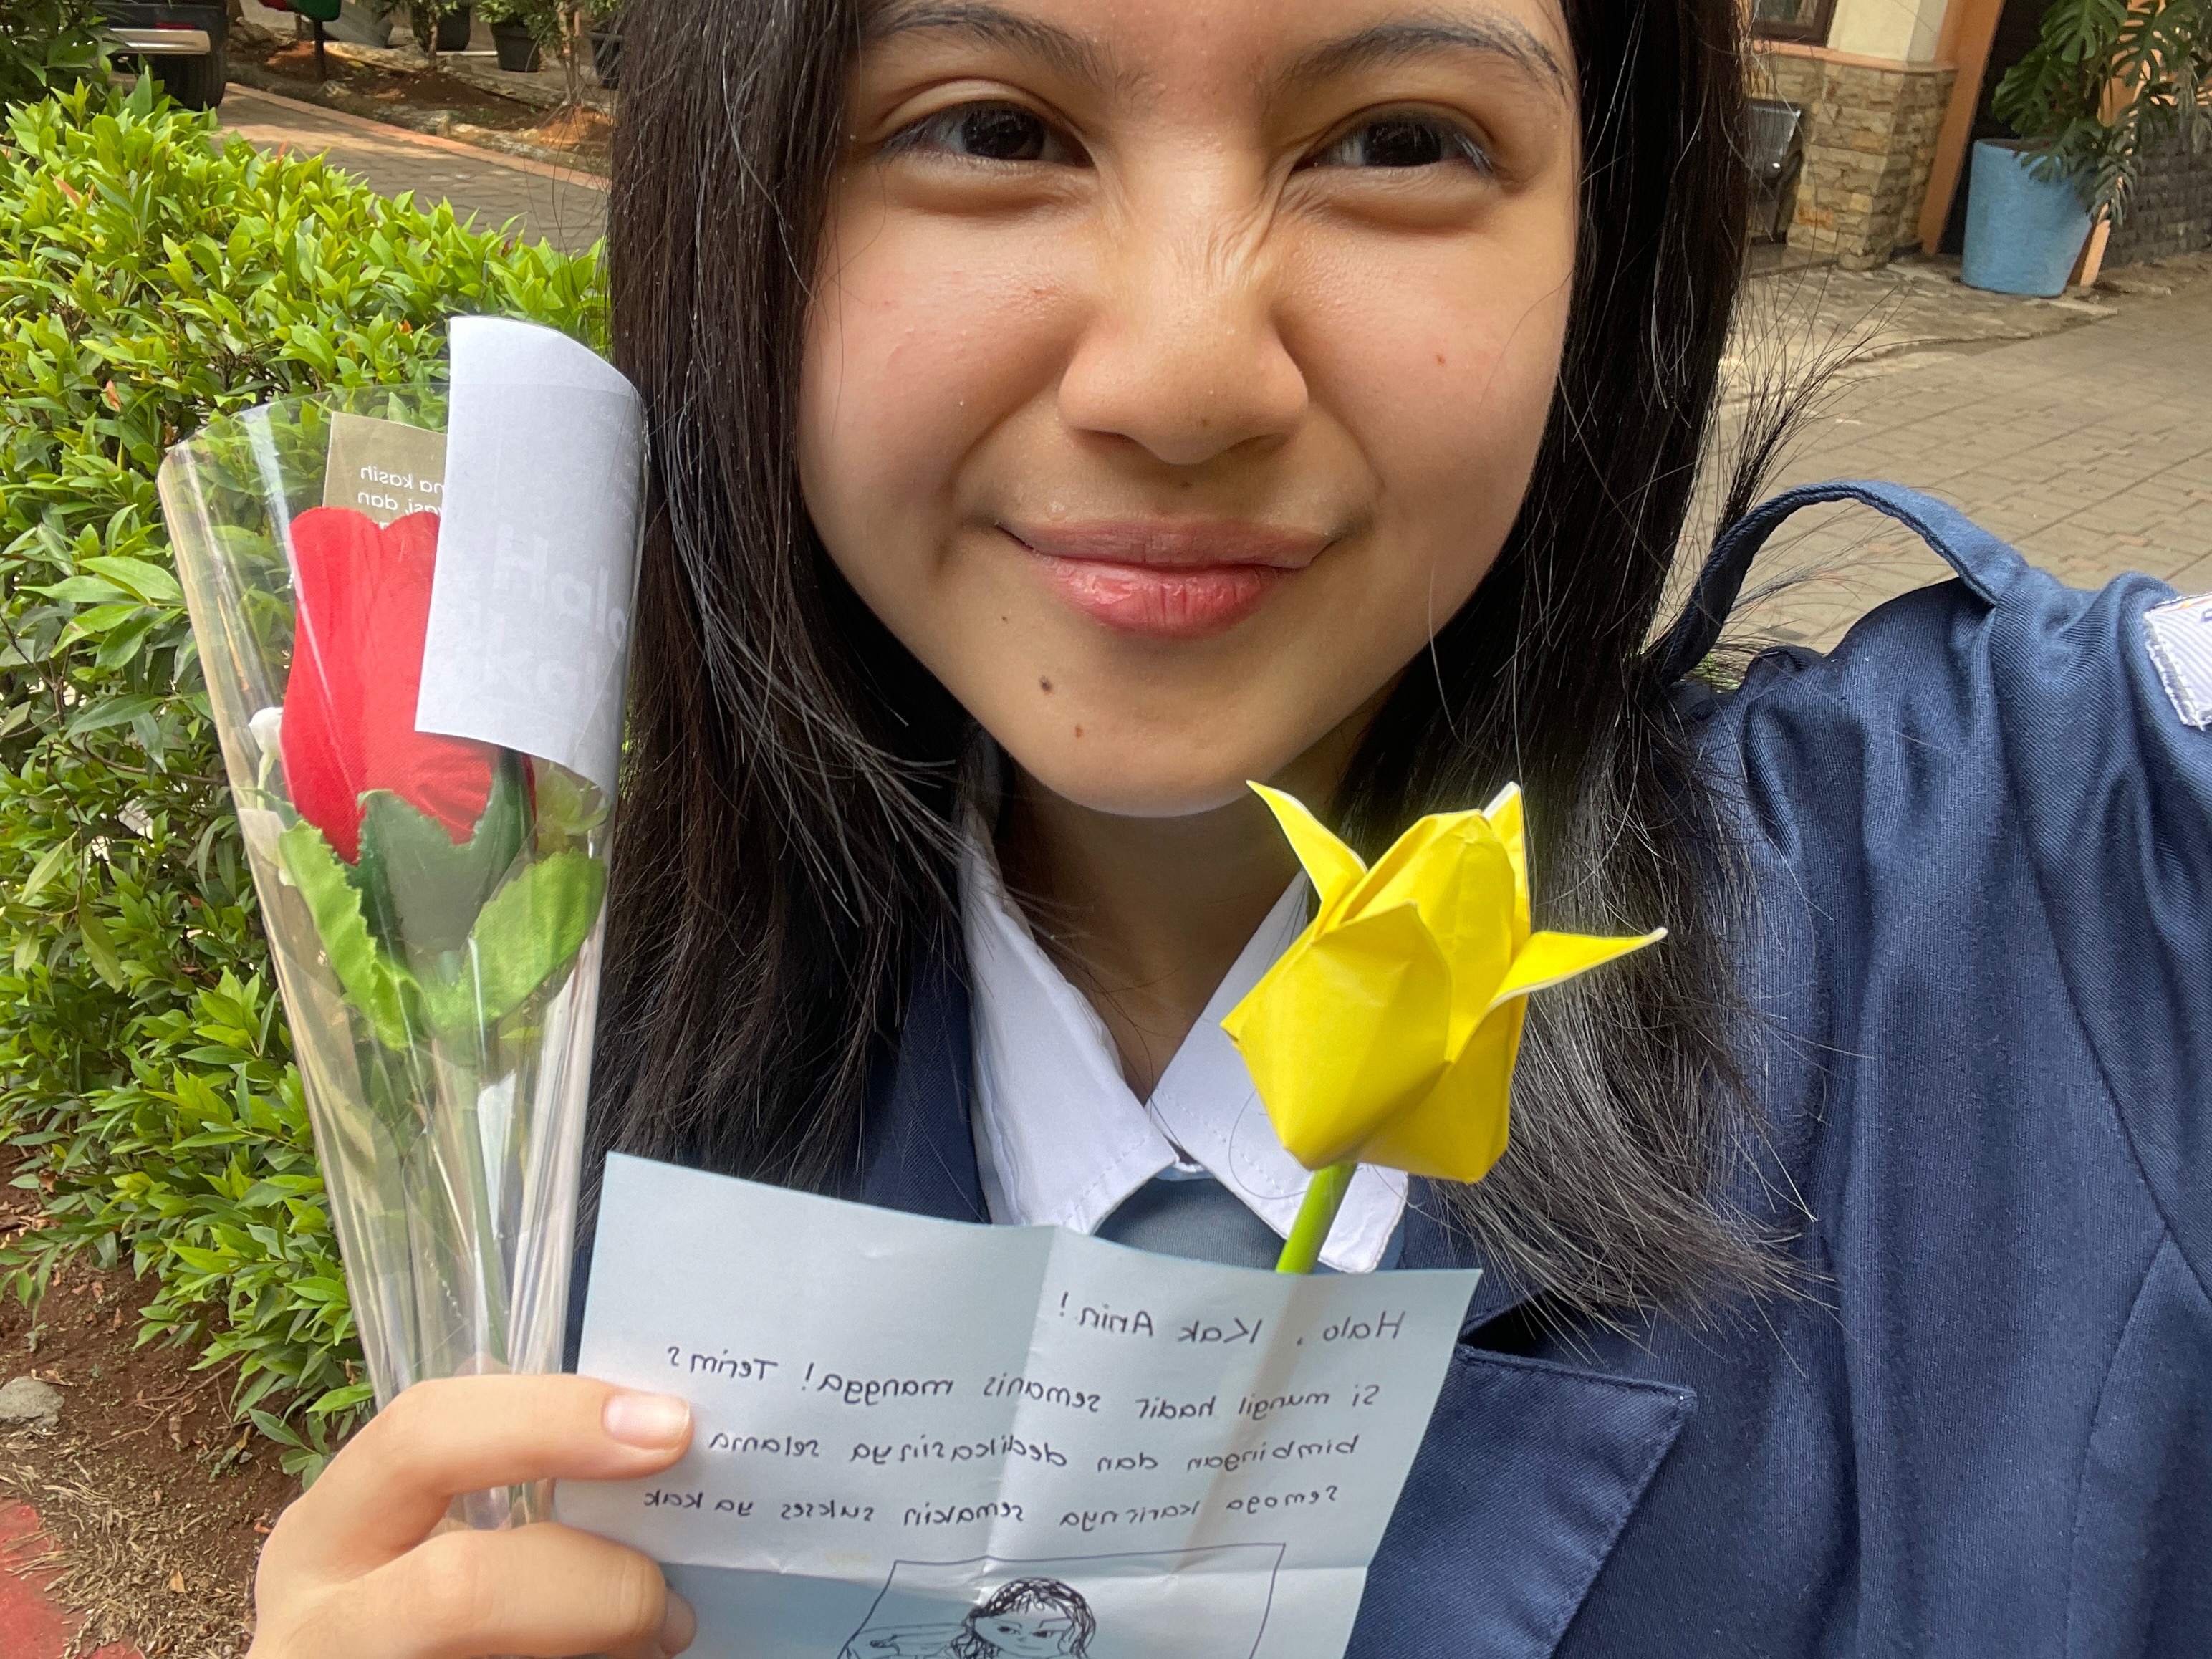 na kasih
asi, dan
Halo
Halo, Kak Anin!
Si mungil hadir semanis mangga! Terims
bimbingan dan dedikasinya selama
semoga karirnya semakin sukses ya kak